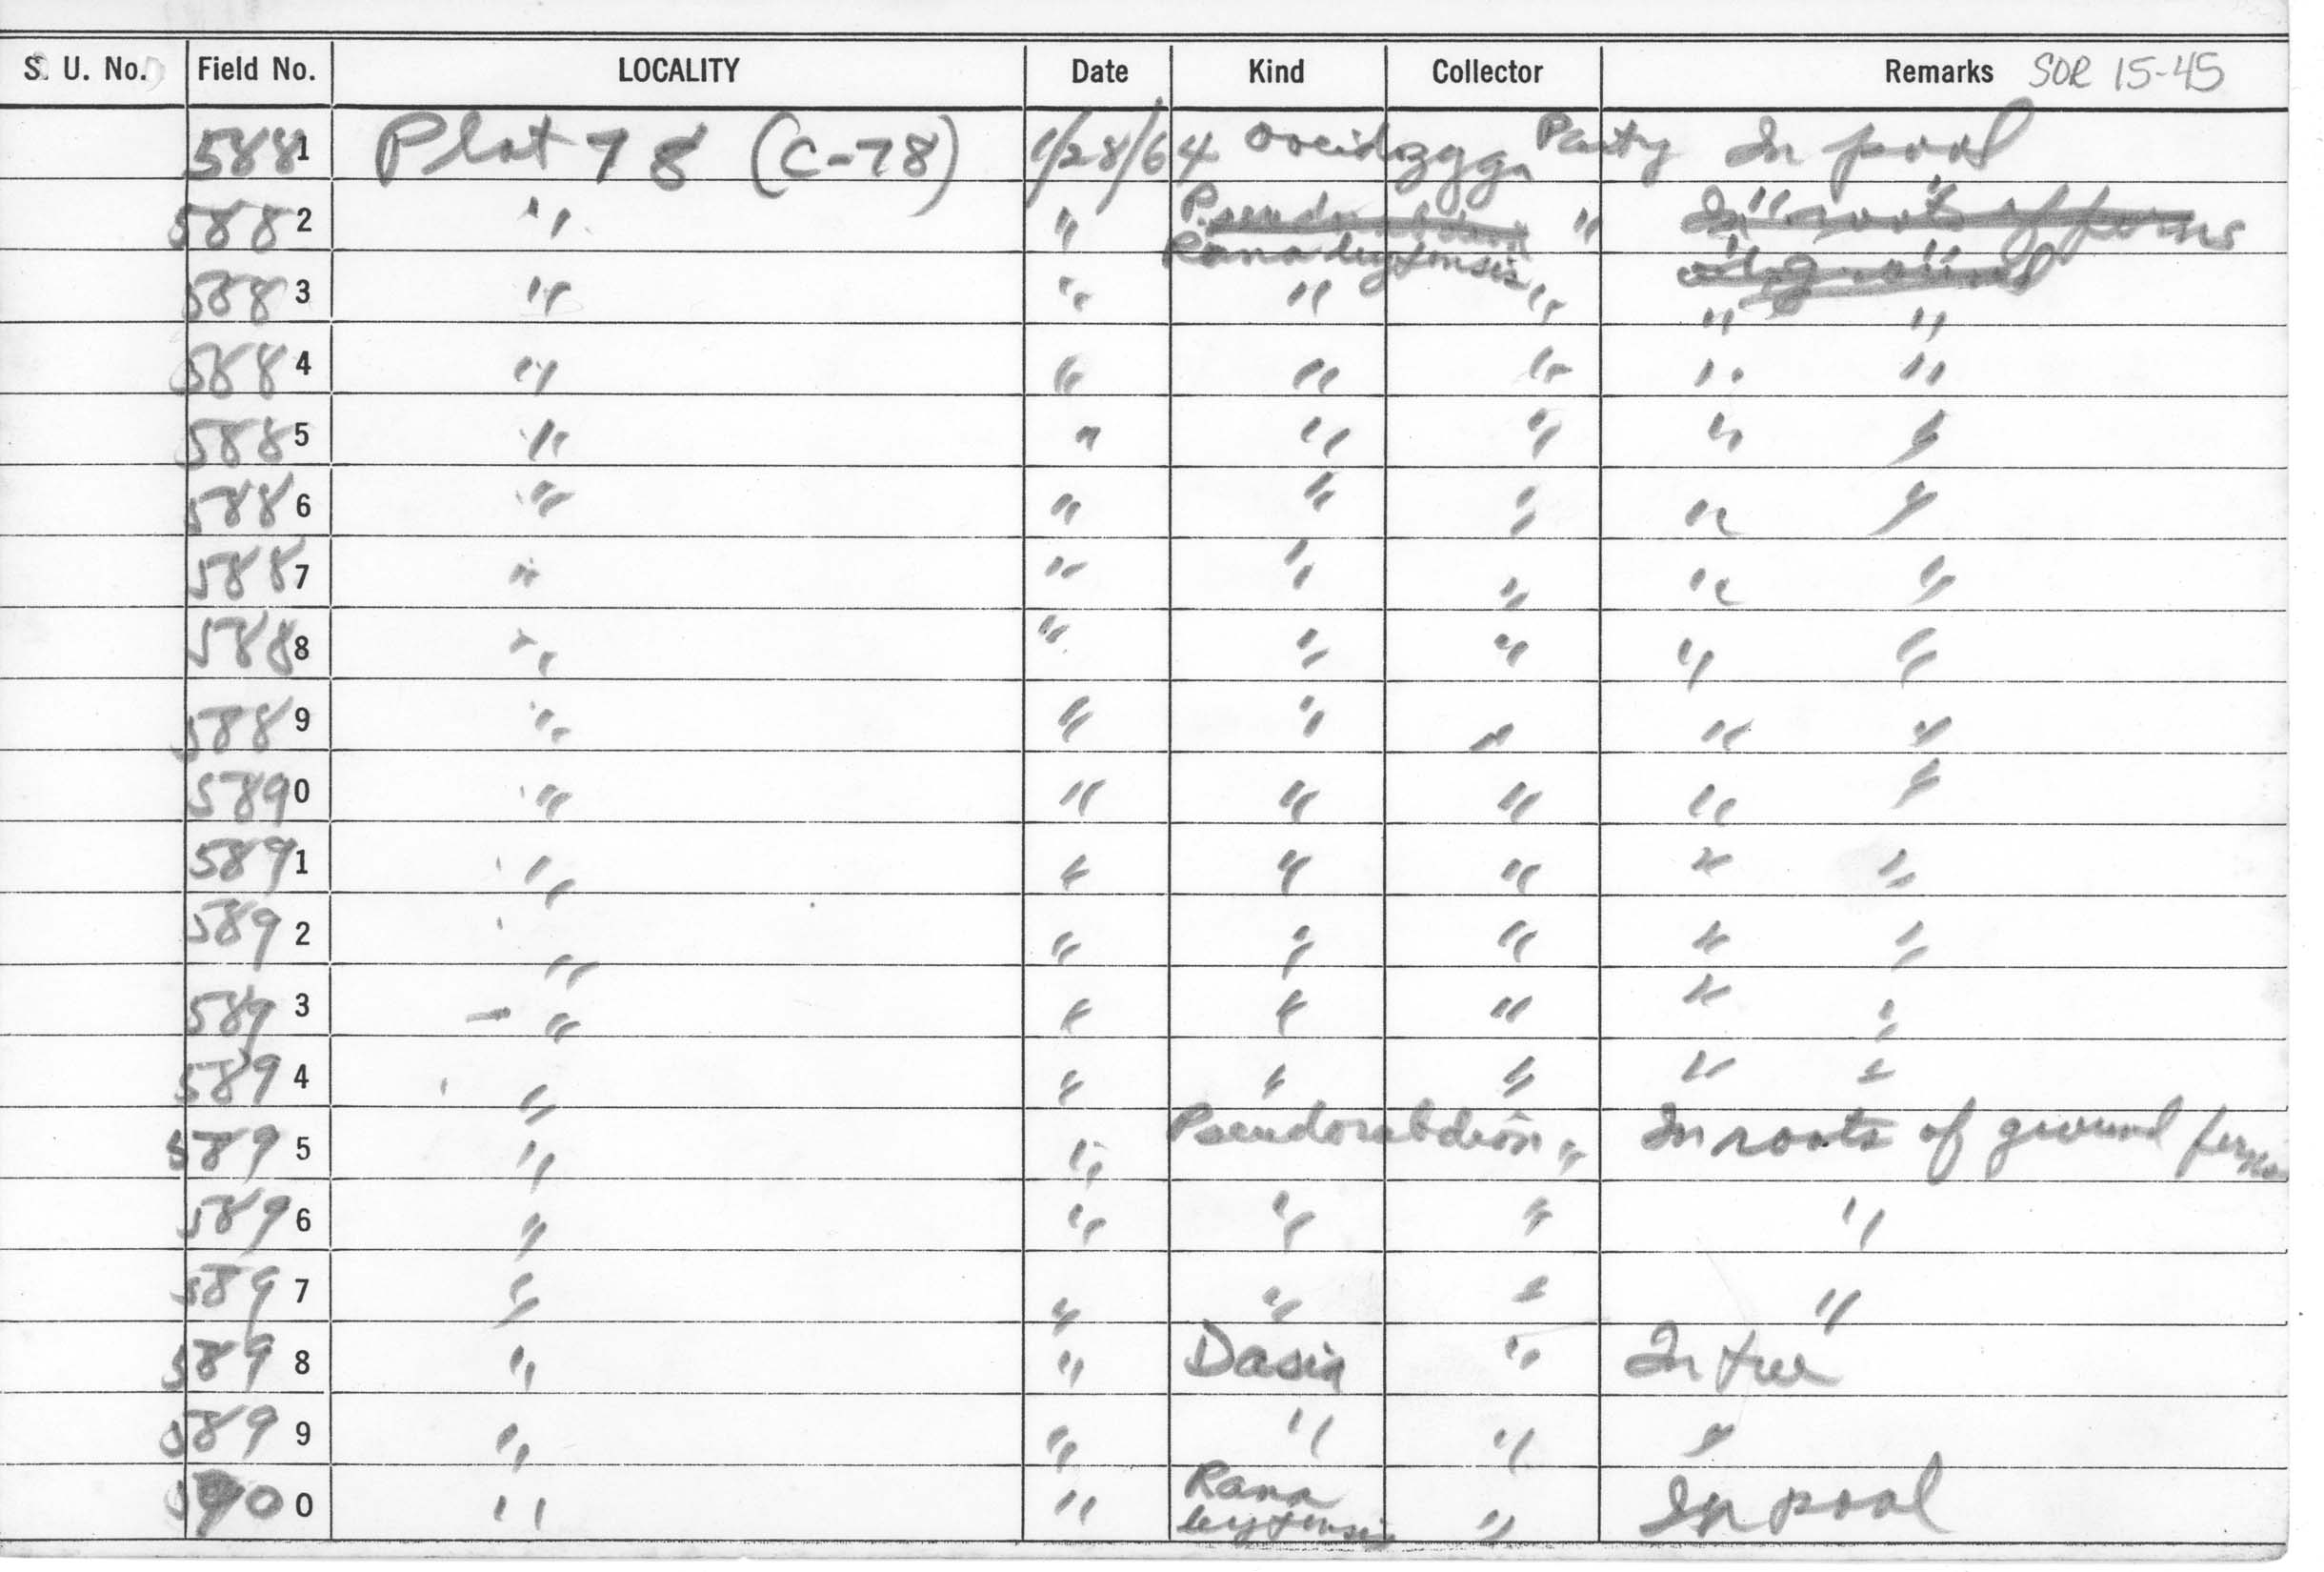 S. U. No. Field No. LOCALITY Date Kind Collector Remarks SOR 15-45
5881 Plot 78 (C-78) 1/28/64 Ooeidozyga Party In pool
5882 " " Pseudorabdion " In roots of ferns
Rana leytensis
5883 " " " " " "
5884 " " " " " "
5885 " " " " " "
5886 " " " " " "
5887 " " " " " "
5888 " " " " " "
5889 " " " " " "
5890 " " " " " "
5891 " " " " " "
5892 " " " " " "
5893 " " " " " "
5894 " " " " " "
5895 " " Pseudorabdion " In roots of ground ferns
5896 " " " " "
5897 " " " " "
5898 " " Dasia " In tree
5899 " " " " "
5900 " " Rana leytensis " In pool